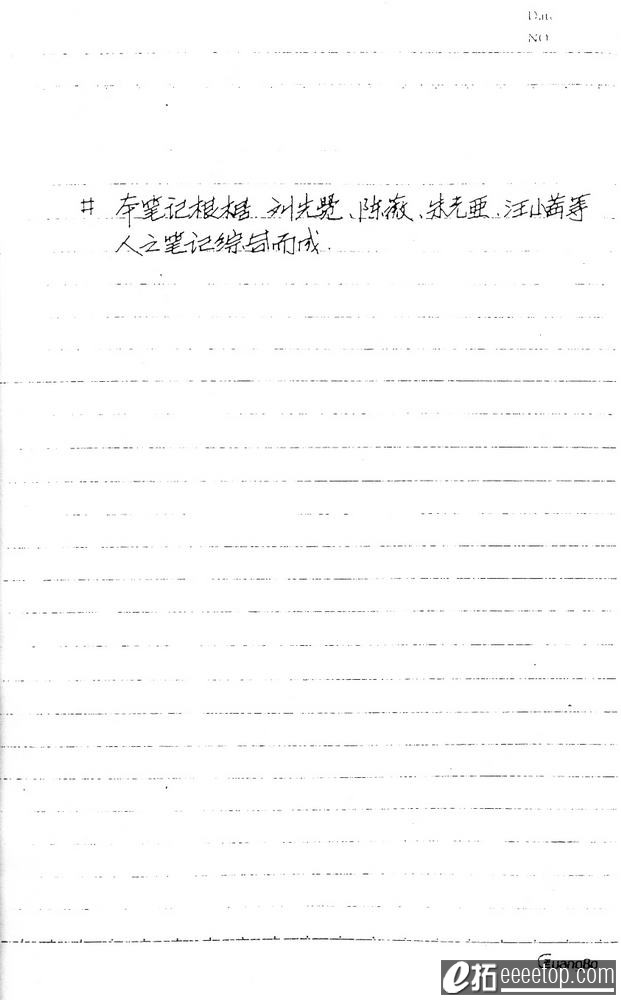 Date
NO
# 本笔记根据 刘先觉、陈薇、朱光亚、汪小茜等
人之笔记综合而成.
GuangBo
e拓 eeeetop.com